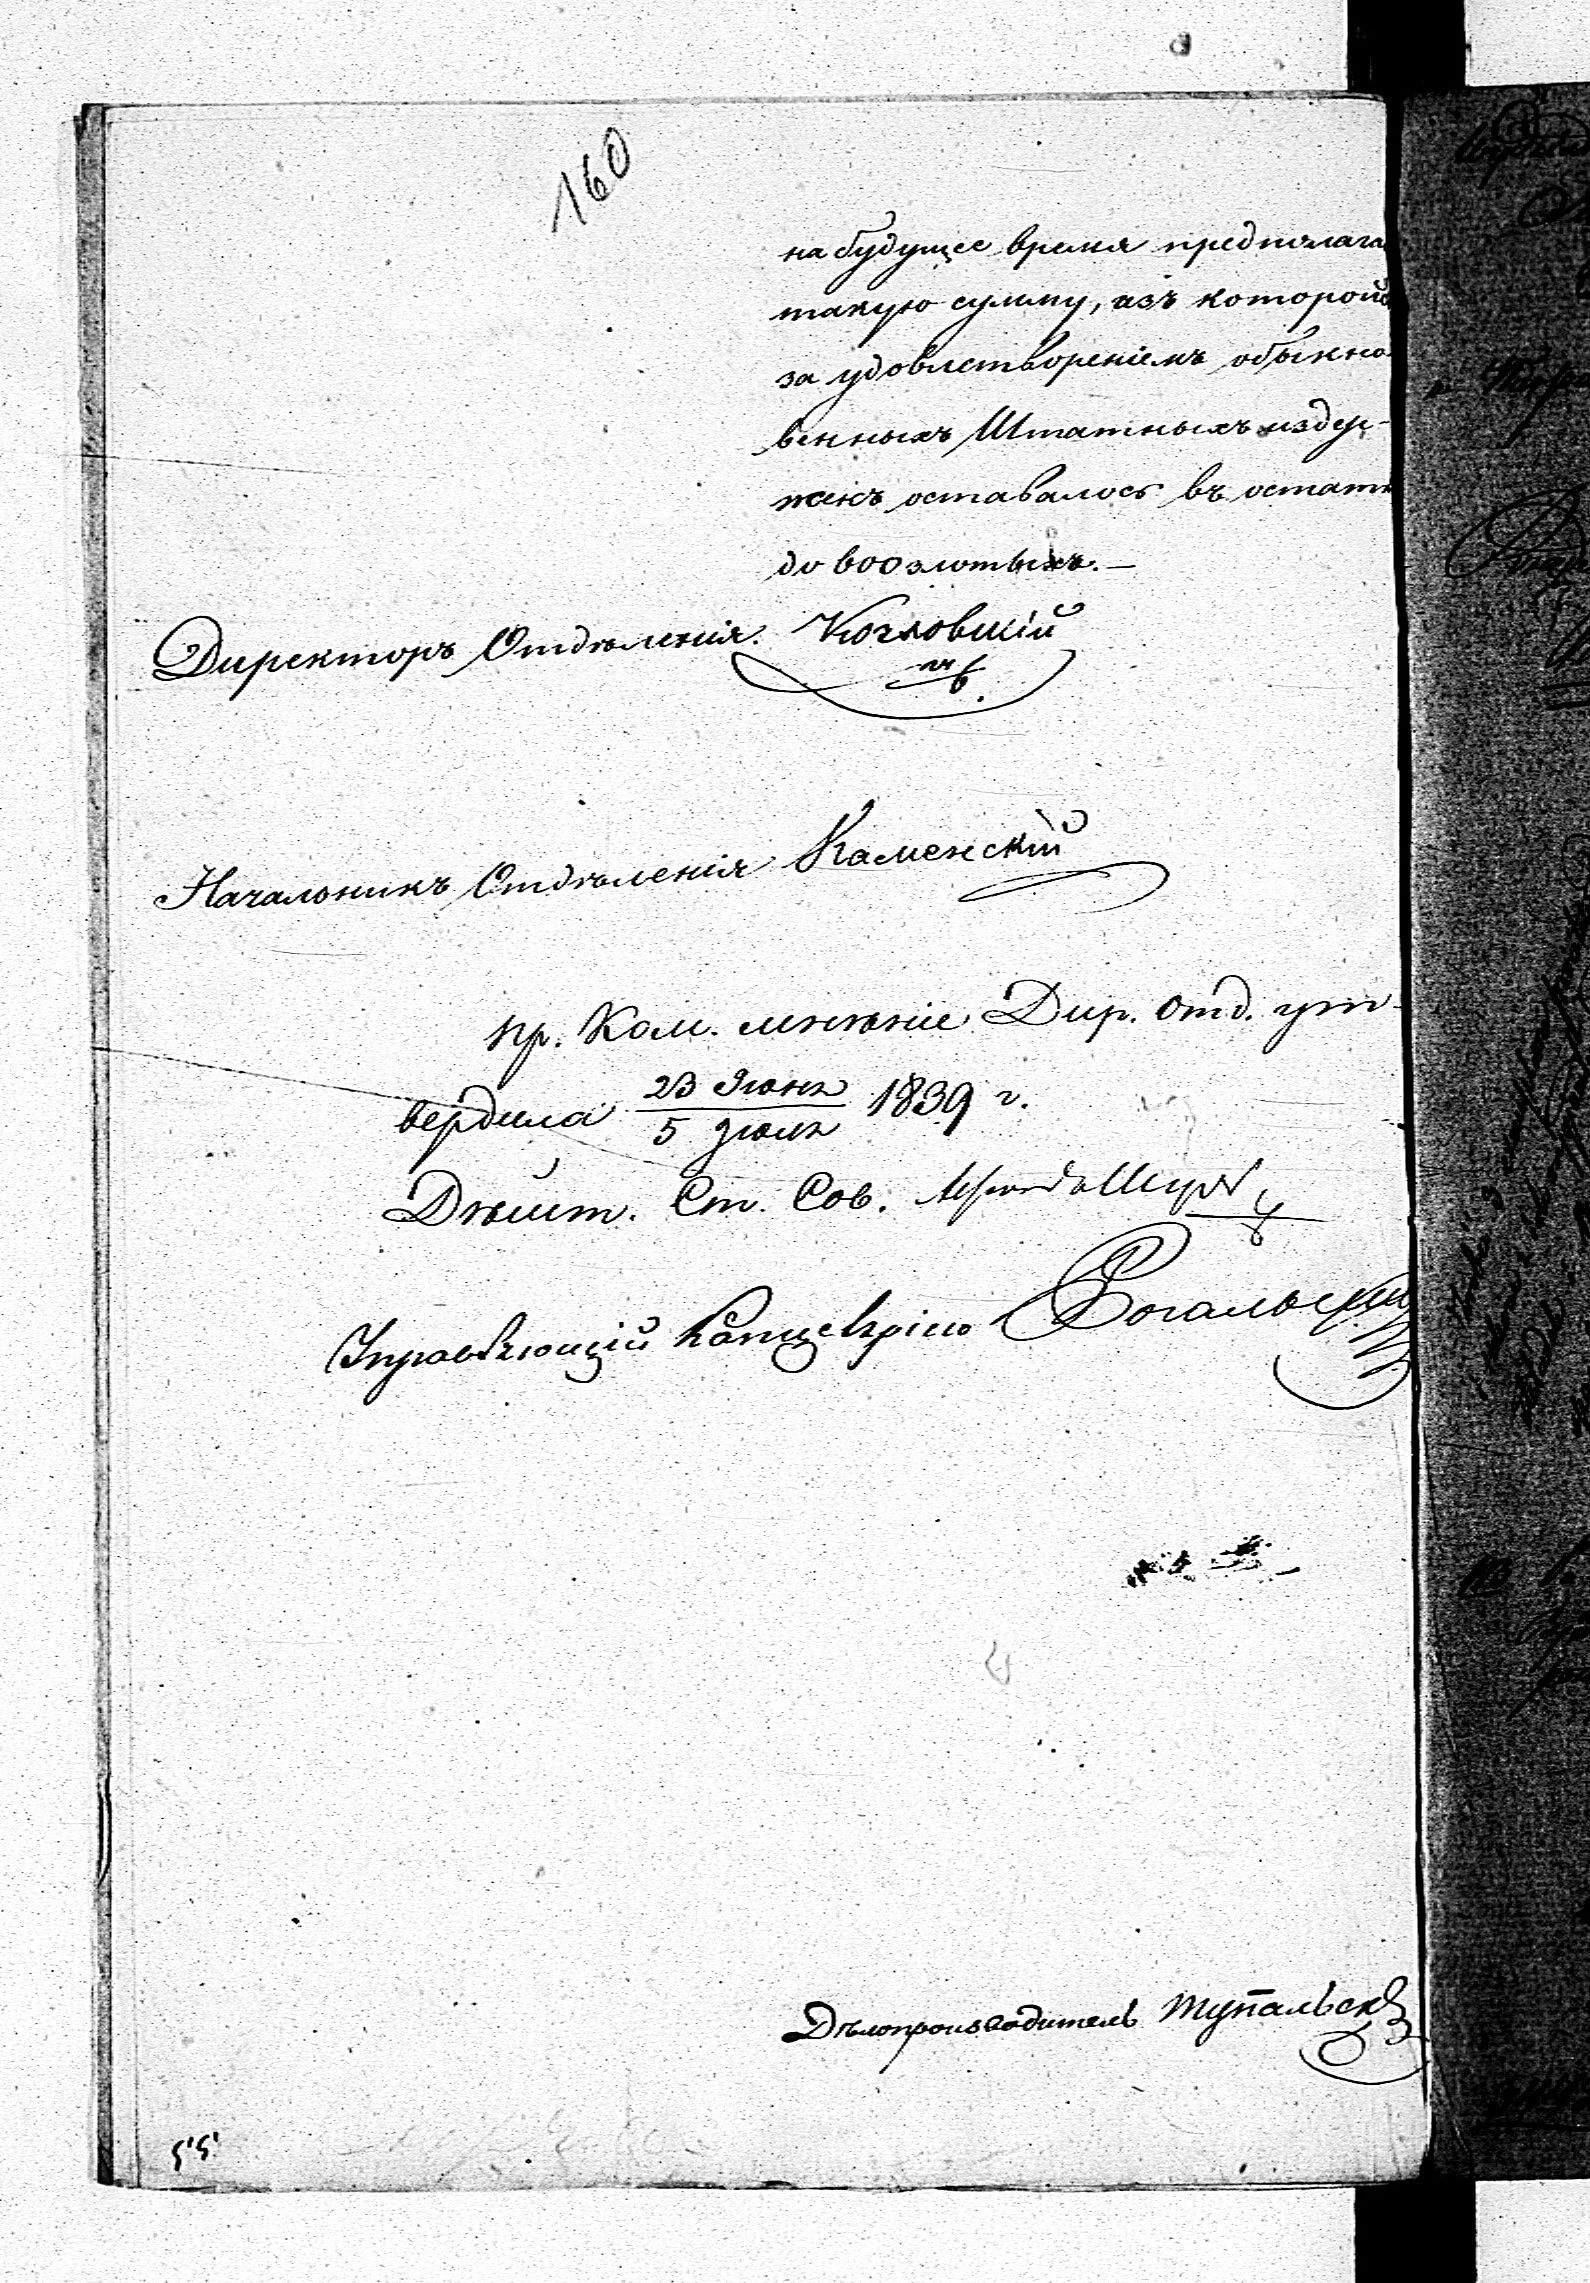 160
на будущее время предполага
такую сумму, изъ которой
за удовлетвореніемъ обыкно
венныхъ Штатныхъ издер-
жекъ оставалось въ остатк
до 600 злотыхъ. —
Директоръ Отдѣленія. Козловскій
Начальникъ Отдѣленія Каменскій
пр. Ком. мнѣніе Дир. Отд. ут-
вердила 23 Іюня
5 Іюля 1839 г.
Дѣйст. Ст. Сов.
Управляющій Канцеляріею Рогальскій
Дѣлопроизводитель Тупальск